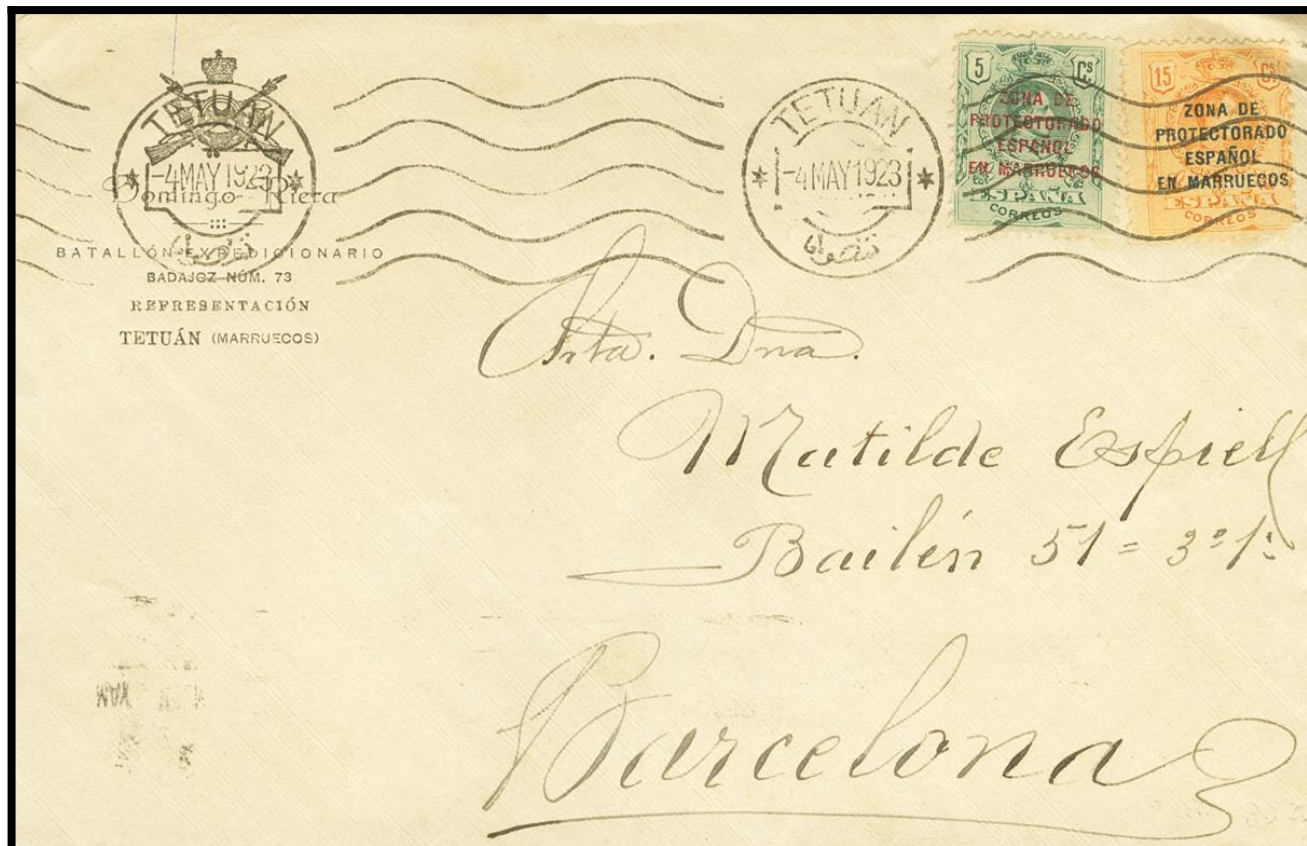 TETUAN
-4 MAY 1923
Domingo Riera
BATALLÓN EXPEDICIONARIO
BADAJOZ NÚM. 73
REPRESENTACIÓN
TETUÁN (MARRUECOS)
TETUAN
-4 MAY 1923
تطوان
5 Cs
ZONA DE
PROTECTORADO
ESPAÑOL
EN MARRUECOS
ESPAÑA
CORREOS
15 Cs
ZONA DE
PROTECTORADO
ESPAÑOL
EN MARRUECOS
ESPAÑA
CORREOS
Srta. Dna.
Matilde Espiell
Bailén 51 = 3º 1ª
Barcelona